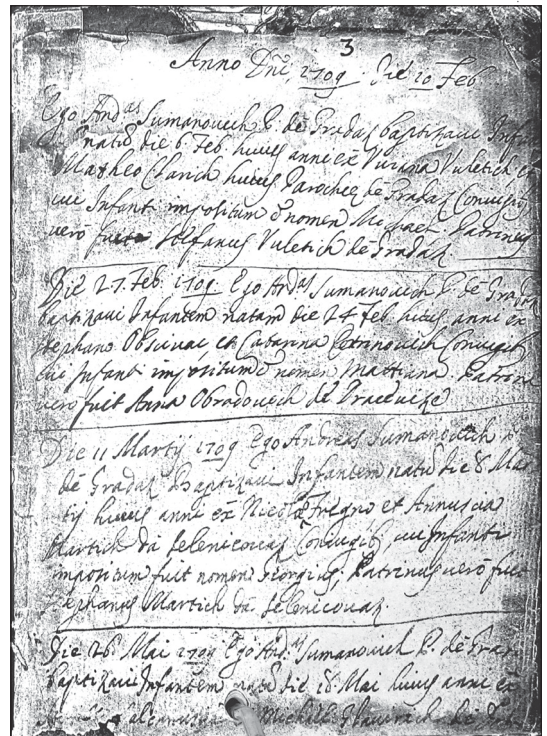 3
Anno Dnĩ, 1709. Die 20 Feb
Ego And.as Sumanovich P. de Gradaz baptizavi Infa
natũ die 6 Feb. huius anni ex Vurana Vuletich, et
Matheo Clarich huius Parochie de Gradaz Coniugib
cui Infanti impositum ẽ nomen Michael. Patrinus
verò fuit Stefanus Vuletich de Gradaz
Die 27. Feb. 1709. Ego And.as Sumanovich P. de Gradaz
baptizavi Infantem natam die 24 Feb. huius anni ex
Stephano et Catarina Petrinovich Coniugib
cui Infanti impositum ẽ nomen Mattiana. Patrina
verò fuit Anna Obradovich de
Die 11 Martij 1709 Ego Andreas Sumanovich P.
de Gradaz Baptizavi Infantem natũ die 8 Mar
tij huius anni ex Nicola Fregno et Annuscia
Martich da Selenicovaz Coniugib, cui Infanti
impositum fuit nomen Giorgius; Patrinus verò fuit
Stephanus Martich da Selenicovaz.
Die 26. Mai 1709 Ego And.as Sumanovich P. de Gra
baptizavi Infantem natũ die 18 Mai huius anni ex
Michaele de